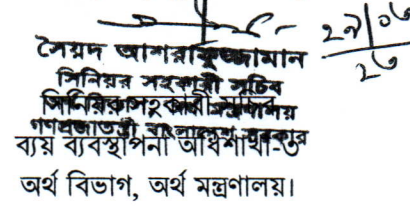 ২৭/০৬
২৩
সৈয়দ আশরাফুজ্জামান
সিনিয়র সহকারী সচিব
সিনিয়র সহকারী সচিব
গণপ্রজাতন্ত্রী বাংলাদেশ সরকার
ব্যয় ব্যবস্থাপনা অধিশাখা-৩
অর্থ বিভাগ, অর্থ মন্ত্রণালয়।